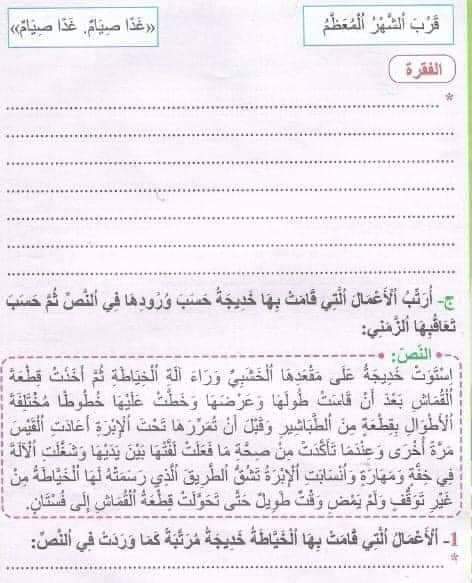 قَرُبَ اَلشَّهْرُ اَلْمُعَظَّمُ
«غَدًا صِيَامٌ، غَدًا صِيَامٌ»
الفقرة
*
ج- أُرَتِّبُ اَلْأَعْمَالَ اَلَّتِي قَامَتْ بِهَا خَدِيجَةُ حَسَبَ وُرُودِهَا فِي اَلنَّصِّ ثُمَّ حَسَبَ
تَعَاقُبِهَا اَلزَّمَنِي:
النَّصّ:
اِسْتَوَتْ خَدِيجَةُ عَلَى مَقْعَدِهَا اَلْخَشَبِيِّ وَرَاءَ آلَةِ اَلْخِيَاطَةِ ثُمَّ أَخَذَتْ قِطْعَةَ
اَلْقُمَاشِ بَعْدَ أَنْ قَاسَتْ طُولَهَا وَعَرْضَهَا وَخَطَّتْ عَلَيْهَا خُطُوطًا مُخْتَلِفَةَ
اَلْأَطْوَالِ بِقِطْعَةٍ مِنَ اَلطَّبَاشِيرِ وَقَبْلَ أَنْ تُمَرِّرَهَا تَحْتَ اَلْإِبْرَةِ أَعَادَتِ اَلْقَيْسَ
مَرَّةً أُخْرَى وَعِنْدَمَا تَأَكَّدَتْ مِنْ صِحَّةِ مَا فَعَلَتْ لَفَّتْهَا بَيْنَ يَدَيْهَا وَشَغَّلَتِ اَلْآلَةَ
فِي خِفَّةٍ وَمَهَارَةٍ وَاَنْسَابَتِ اَلْإِبْرَةُ تَشُقُّ اَلطَّرِيقَ اَلَّذِي رَسَمَتْهُ لَهَا اَلْخَيَّاطَةُ مِنْ
غَيْرِ تَوَقُّفٍ وَلَمْ يَمْضِ وَقْتٌ طَوِيلٌ حَتَّى تَحَوَّلَتْ قِطْعَةُ اَلْقُمَاشِ إِلَى فُسْتَانٍ.
1- اَلْأَعْمَالُ اَلَّتِي قَامَتْ بِهَا اَلْخَيَّاطَةُ خَدِيجَةُ مُرَتَّبَةً كَمَا وَرَدَتْ فِي اَلنَّصِّ:
*